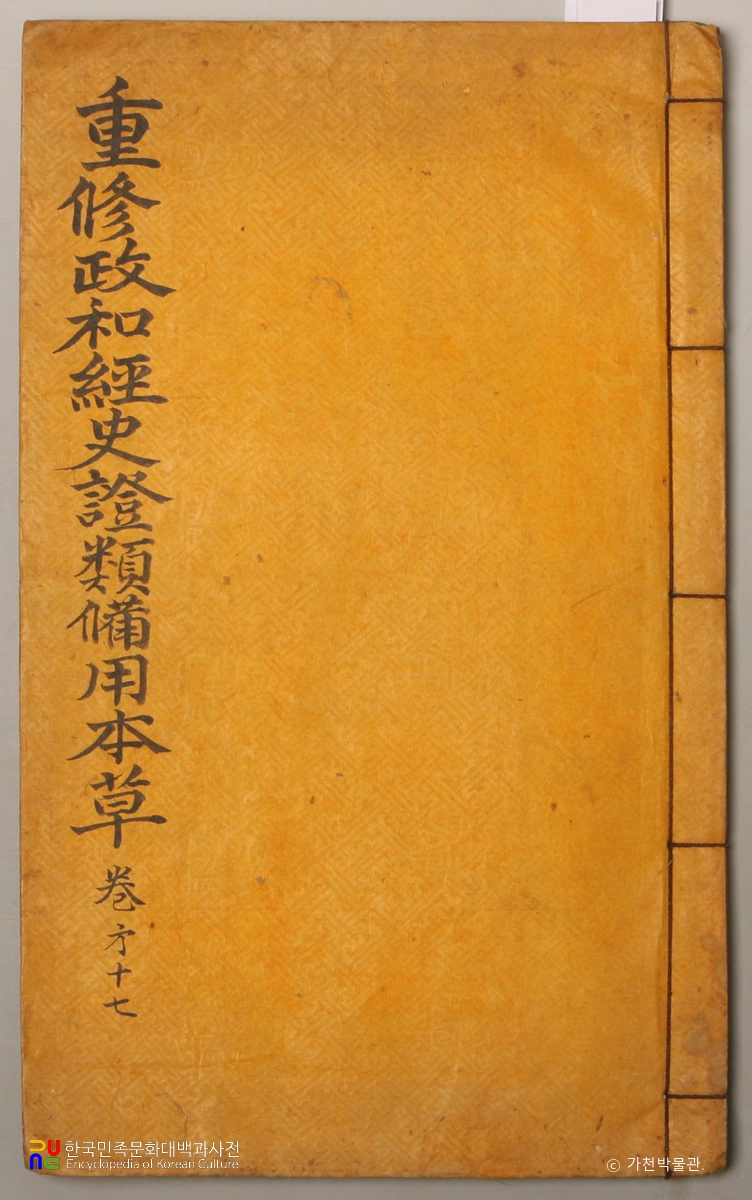 重修政和經史證類備用本草 卷㐧十七
한국민족문화대백과사전
Encyclopedia of Korean Culture
© 가천박물관.